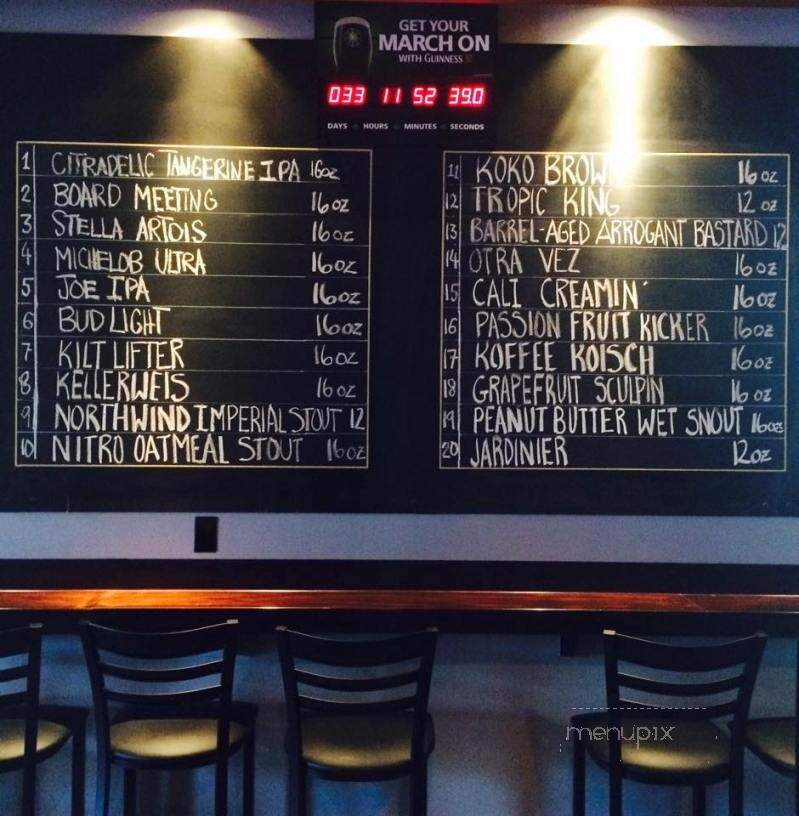 GET YOUR
MARCH ON
WITH GUINNESS
033 11 52 39.0
DAYS HOURS MINUTES SECONDS
1 CITRADELIC TANGERINE IPA 16oz
2 BOARD MEETING 16 oz
3 STELLA ARTOIS 16 oz
4 MICHELOB ULTRA 16oz
5 JOE IPA 16oz
6 BUD LIGHT 16 oz
7 KILT LIFTER 16oz
8 KELLERWEIS 16 oz
9 NORTHWIND IMPERIAL STOUT 12
10 NITRO OATMEAL STOUT 16oz
11 KOKO BROWN 16 oz
12 TROPIC KING 12 oz
13 BARREL-AGED ARROGANT BASTARD 12
14 OTRA VEZ 16oz
15 CALI CREAMIN' 16oz
16 PASSION FRUIT KICKER 16oz
17 KOFFEE KOISCH 16oz
18 GRAPEFRUIT SCULPIN 16 oz
19 PEANUT BUTTER WET SNOUT 16oz
20 JARDINIER 12oz
menupix